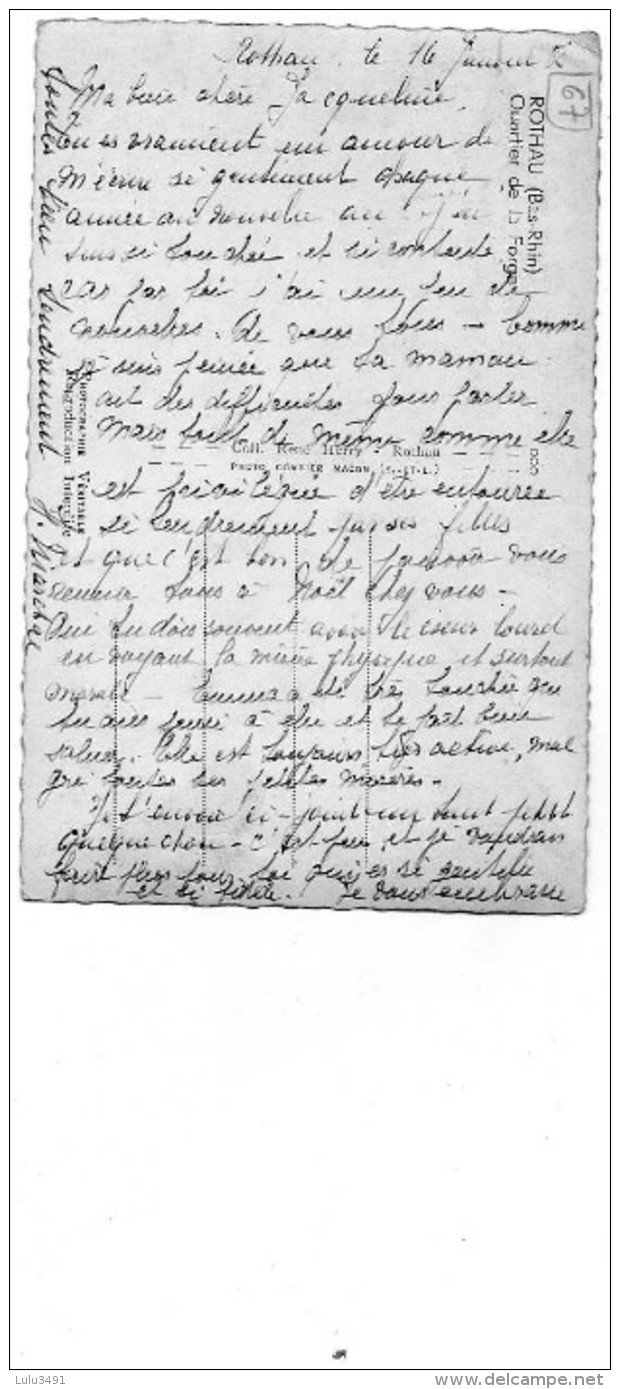 Rothau, le 16 Janvier
Ma bien chère Jacqueline,
Tu es vraiment un amour de
m'écrire si gentiment chaque
année au nouvel an. J'en
suis si touchée et si contente
car par toi j'ai un peu de
nouvelles de vous tous - Comme
je suis peinée que ta maman
ait des difficultés pour parler
Mais tout de même comme elle
est privilégiée d'être entourée
si tendrement par ses filles
et que c'est bon de pouvoir vous
réunir tous à Noël chez vous -
Oui tu dois souvent avoir le cœur lourd
en voyant la misère physique et surtout
morale - Emma a été très touchée que
tu aies pensé à elle et te fait bien
saluer. Elle est toujours très active, mal
gré toutes ses petites misères -
Je t'envoie ci-joint un tout petit
quelque chose - c'est peu et je voudrais
faire plus pour toi qui es si gentille
et si fidèle. Je vous embrasse
toutes bien tendrement J. Marchal
ROTHAU (Bas-Rhin)
Quartier de la Forge
67
Coll. René Herry - Rothau
PHOTO COMBIER MACON (S.-ET-L.)
PHOTOGRAPHIE VÉRITABLE
Reproduction Interdite
Lulu3491
www.delcampe.net